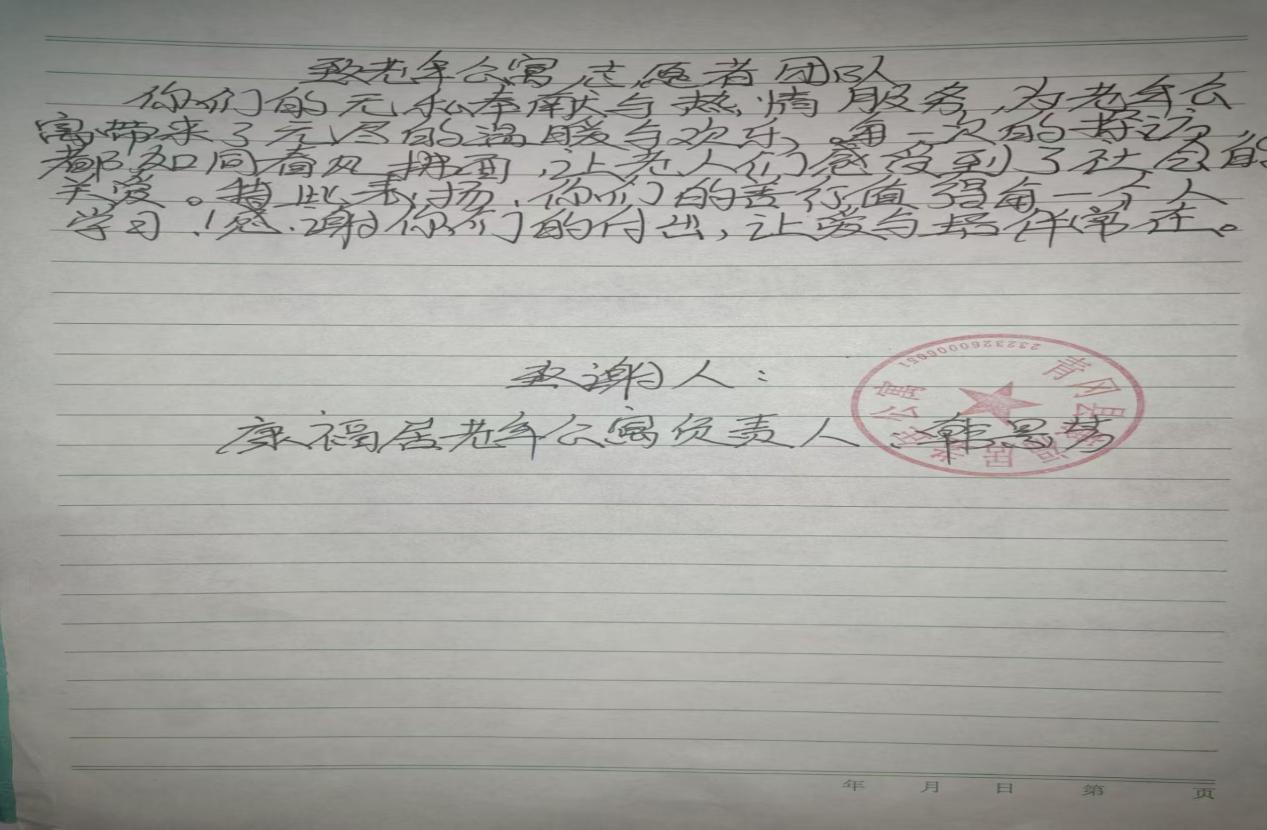 致老年公寓志愿者团队
你们的无私奉献与热情服务,为老年公
寓带来了无尽的温暖与欢乐。每一次的探访,
都如同春风拂面,让老人们感受到了社会的
关爱。特此表扬,你们的善行值得每一个人
学习!感谢你们的付出,让爱与陪伴常在。
致谢人:
康福居老年公寓负责人:韩
青冈县康福居老年公寓
2323260006051
年 月 日 第 页